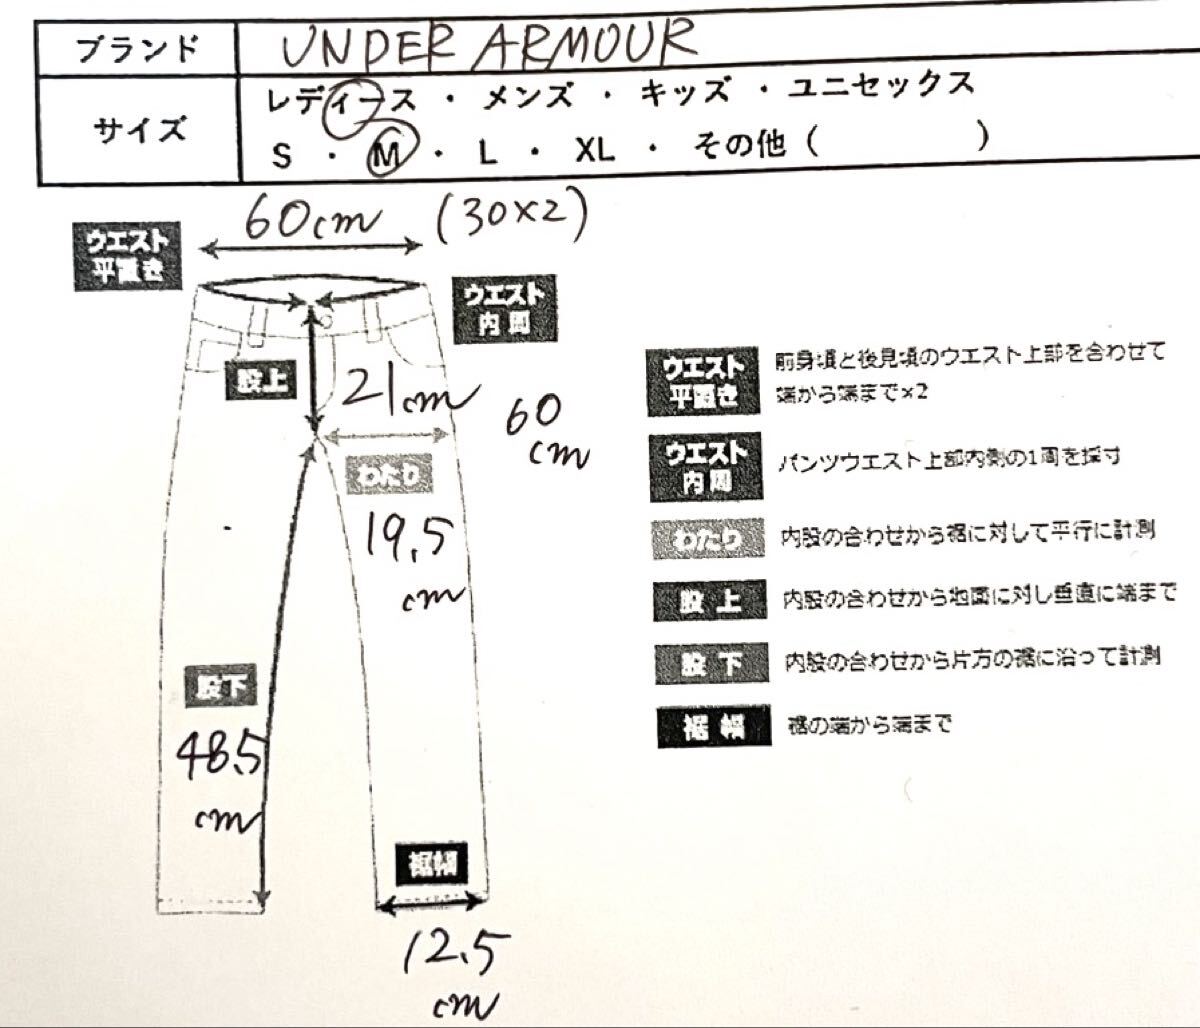 ブランド UNDER ARMOUR
サイズ レディース ・ メンズ ・ キッズ ・ ユニセックス
S ・ M ・ L ・ XL ・ その他 ( )
60cm (30×2)
ウエスト
平置き
ウエスト
内周
股上
21cm
60
cm
わたり
19.5
cm
股下
48.5
cm
裾幅
12.5
cm
ウエスト
平置き
前身頃と後見頃のウエスト上部を合わせて
端から端まで×2
ウエスト
内周
パンツウエスト上部内側の1周を採寸
わたり
内股の合わせから裾に対して平行に計測
股上
内股の合わせから地面に対し垂直に端まで
股下
内股の合わせから片方の裾に沿って計測
裾幅
裾の端から端まで